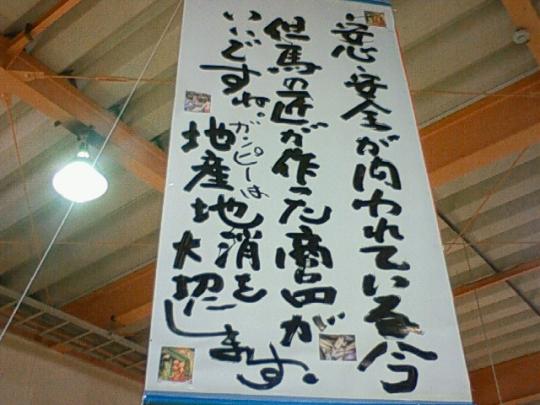 安心、安全が問われている今
但馬の匠が作った商品が
いいですね。
ガンピーは
地産地消を
大切にします。